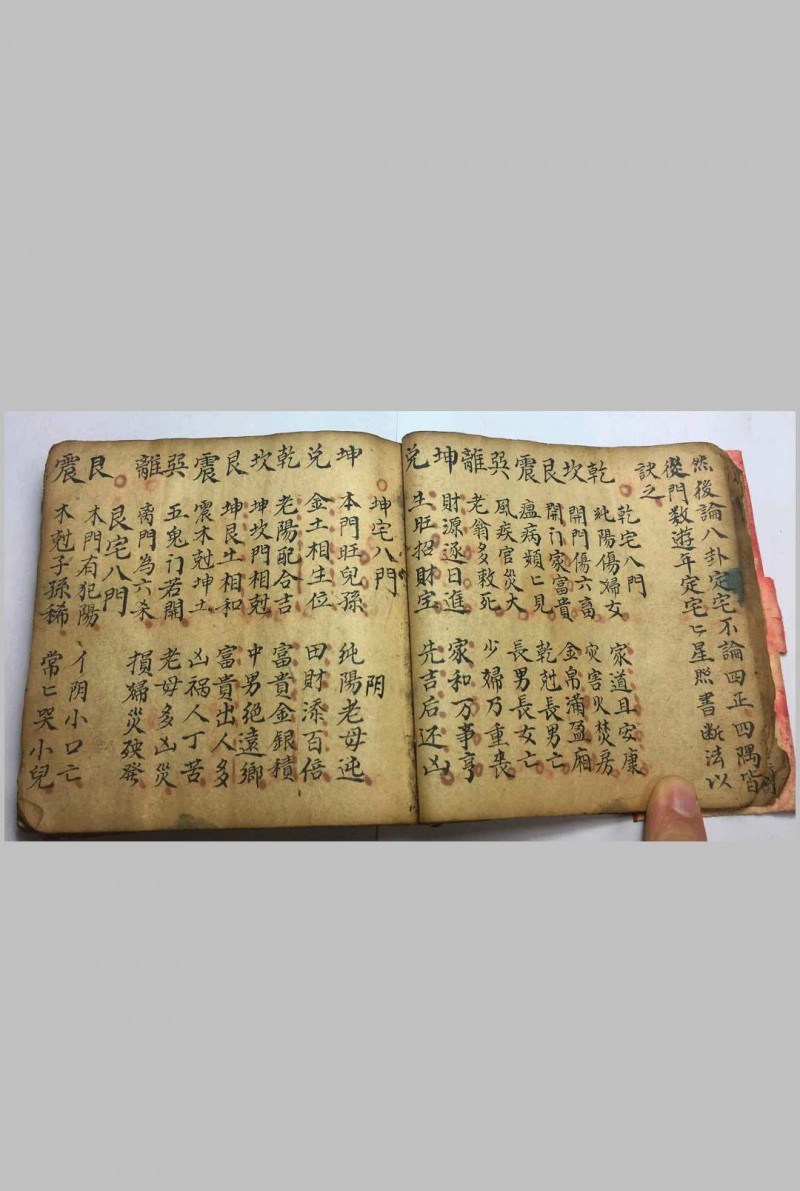 然後論八卦定宅不論四正四隅皆
從門数遊年定宅匕星照書断法以
訣之
乾宅八門
乾 純陽傷婦女 家道且安康
坎 開門傷六畜 灾害火焚房
艮 開门家富貴 金帛滿盈廂
震 瘟病頻匕見 乾尅長男亡
巽 風疾官災大 長男長女亡
離 老翁多敕死 少婦乃重喪
坤 財源逐日進 家和万事亨
兑 生旺招財宝 先吉后还凶
坤宅八門 阴
坤 本門旺兒孫 純陽老母迍
兑 金土相生位 田財添百倍
乾 老陽配合吉 富貴金銀積
坎 坤坎門相尅 中男絶遠鄉
艮 坤艮土相和 富貴出人多
震 震木尅坤土 凶祸人丁苦
巽 五鬼门若開 老母多凶災
離 离門為六杀 損婦災殃發
艮宅八門
艮 本門有犯陽 丫阴小口亡
震 木尅子孫稀 常匕哭小兒